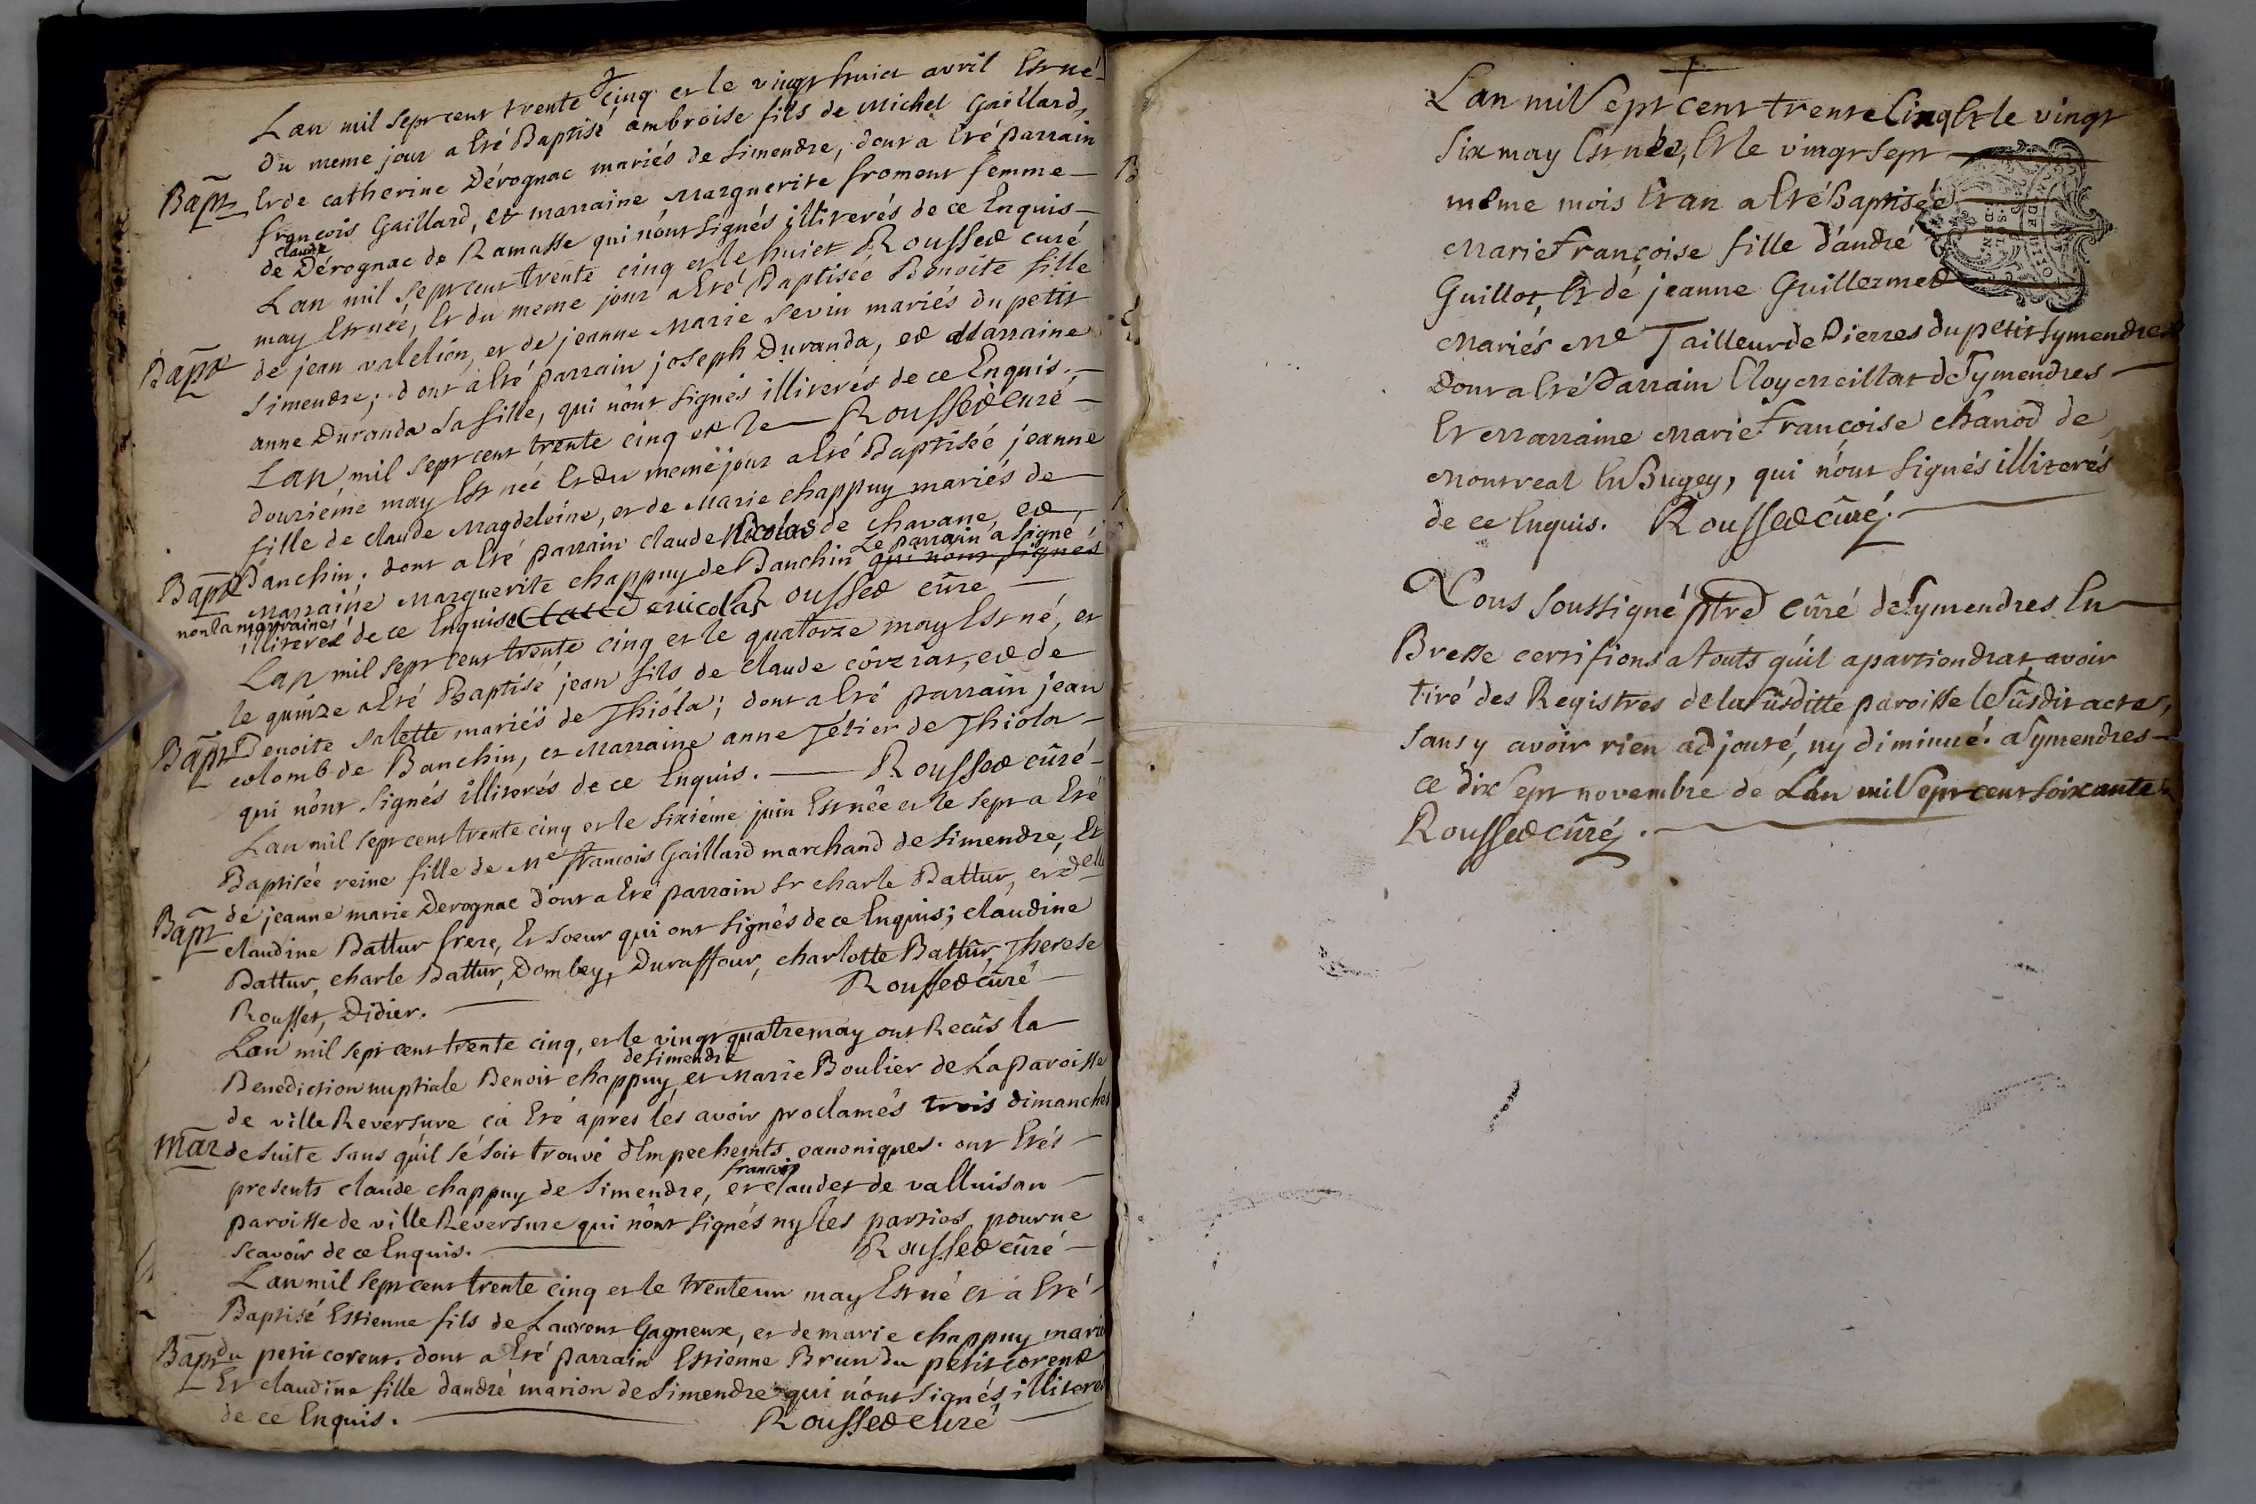 Lan mil sept cent trente cinq et le vingt huict avril Est né
du meme jour a Eté Baptisé ambroise fils de Michel Gaillard,
Bapt Et de catherine Dérognac mariés de Simendre, dont a Eté parrain
françois Gaillard, et marraine Marguerite froment femme
de claude Dérognac de Ramasse qui n'ont signés illiterés de ce Enquis
Lan mil sept cent trente cinq et le huict Roussed curé
may Est née, Et du meme jour a Eté Baptiseé Benoite fille
Bapt de jean valelion, et de jeanne Marie Sevin mariés du petit
Simendre; dont a Eté parrain joseph Duranda, et Marraine
anne Duranda sa fille, qui n'ont signés illiterés de ce Enquis.
Lan mil sept cent trente cinq et le Roussed curé
douziéme may Est neé Et du meme jour a Eté Baptiseé jeanne
fille de claude Magdeleine, et de Marie chappuy mariés de
Bapt Banchin. dont a Eté parrain claude Nicolas de chavane, et
Marraine Marguerite chappuy de Banchin qui nont signés Le parrain a signé
non la marraine illiterée de ce Enquise C nicolas Roussed curé
Lan mil sept cent trente cinq et le quatorze may Est né, et
le quinze a Eté Baptisé jean fils de claude côrziat, et de
Bapt Benoite Salette mariés de Thiola; dont a Eté parrain jean
colomb de Banchin, et Marraine anne Tetier de Thiola
qui n'ont signés illiterés de ce Enquis. Roussed curé
Lan mil sept cent trente cinq et le sixiéme juin Est née et le sept a Eté
Baptisée reine fille de Me françois Gaillard marchand de Simendre, Et
Bapt de jeanne marie Derognac dont a Eté parrain Sr charle Battur, et delle
claudine Battur frere, Et soeur qui ont signés de ce Enquis; claudine
Battur, charle Battur, Dombey, Duraffour, charlotte Battur, Therese
Rousset, Didier. Roussed curé
Lan mil sept cent trente cinq, et le vingt quatre may ont Recûs la
Benediction nuptiale Benoit chappuy de simendre et Marie Boulier de La Paroisse
de ville Reversure ca Eté apres les avoir proclamés trois dimanches
Mar de suite sans quil se soit trouvé d'Empechemts canoniques. ont Etés
presents claude chappuy de Simendre, et françois claudet de valluisan
paroisse de ville Reversure qui n'ont signés ny les parties pour ne
scavoir de ce Enquis. Roussed curé
Lan mil sept cent trente cinq et le trente un may Est né et a Eté
Baptisé Estienne fils de Laurent Gagneux, et de marie chappuy marié
Bapt du petit corent. dont a Eté parrain Estienne Brun du petit corent
Et claudine fille d'andré marion de Simendre qui n'ont signés illiteré
de ce Enquis. Roussed curé
Lan mil sept cent trente Cinq Et le vingt
six may Est née, Et le vingt sept
même mois Et an a Eté Baptisée
Marie Françoise fille d'andré
Guillot, Et de jeanne Guillermet
Mariés Me Tailleur de Pierres du petit Symendre
dont a Eté Parrain Eloy Meillat de Symendres
Et Marraine Marie Françoise chanod de
Montreal En Bugey, qui n'ont signés illiterés
de ce Enquis. Roussed curé.
Nous soussigné ptre curé de Symendres En
Bresse certifions a touts qu'il apartiendrat avoir
tiré des Registres de la susditte paroisse le susdit acte,
sans y avoir rien adjouté, ny diminué. a Symendres
ce dix sept novembre de Lan mil sept cent soixante
Roussed curé.